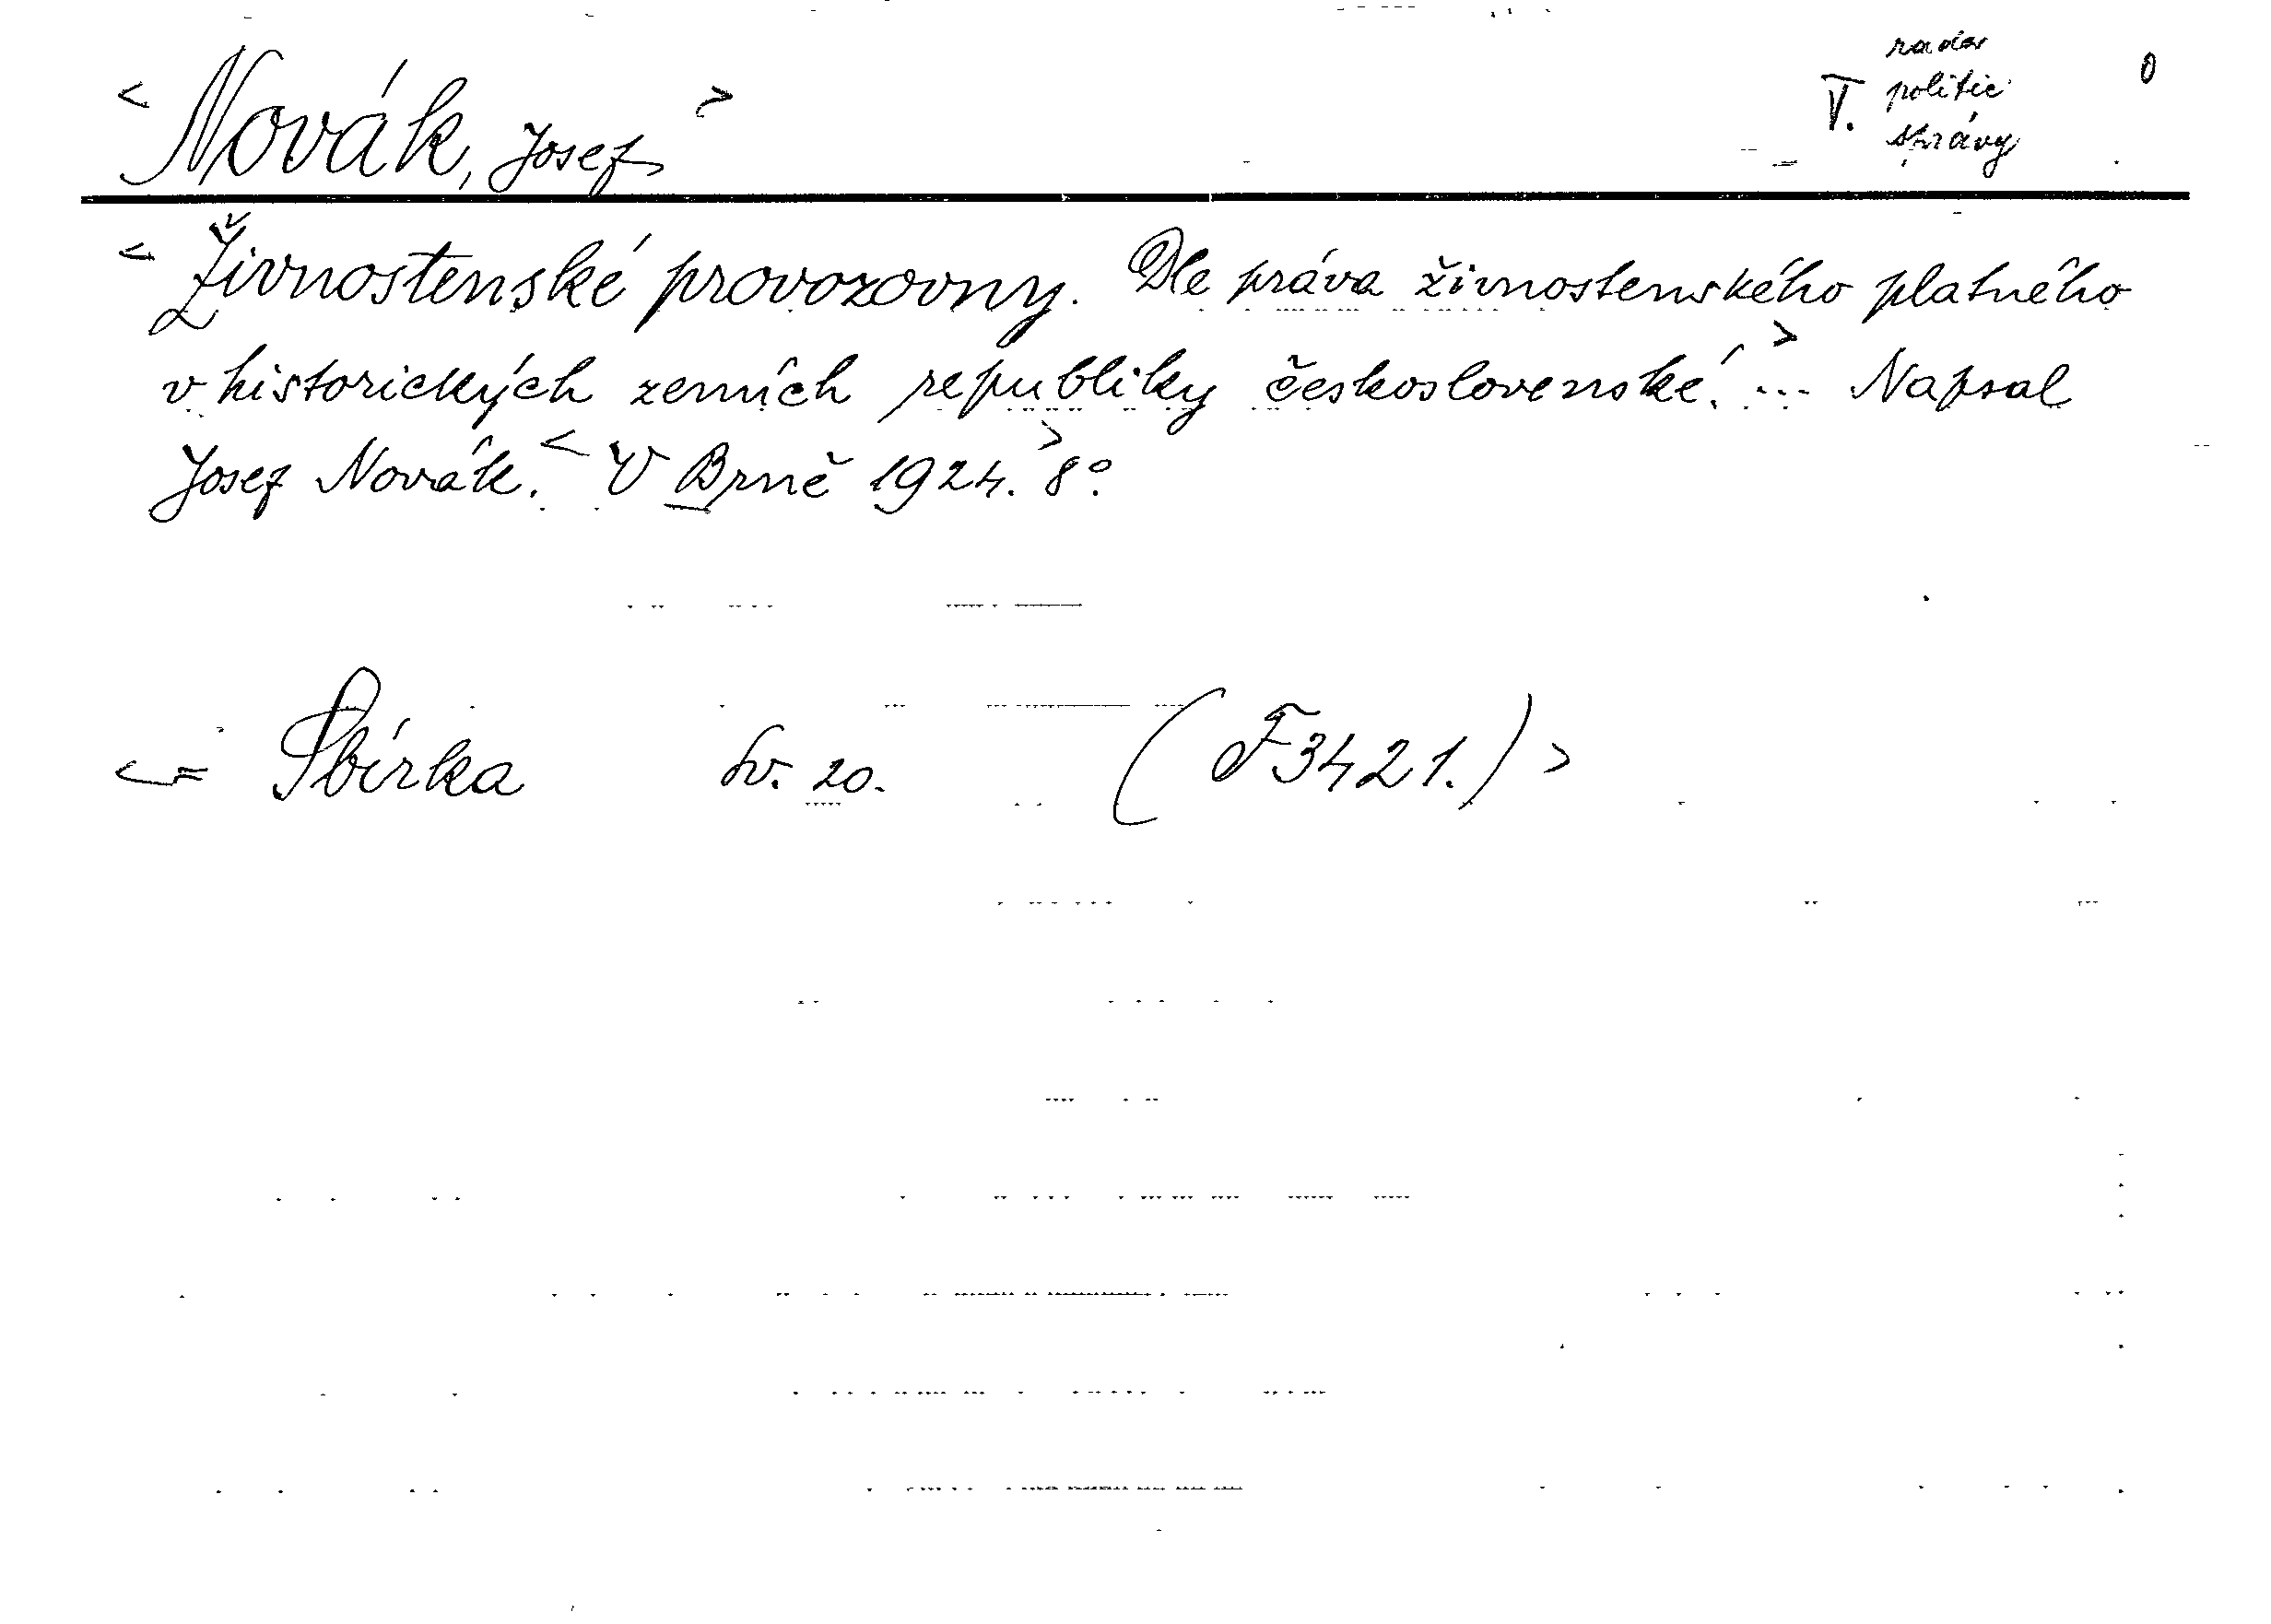 rada
< Novák, Josef > V. politic 0
správy
< Živnostenské provozovny. Dle práva živnostenského platného
v historických zemích republiky československé. > ... Napsal
Josef Novák. < V Brně 1924. > 8°.
<= Sbírka Sv. 20. (F3421.) >